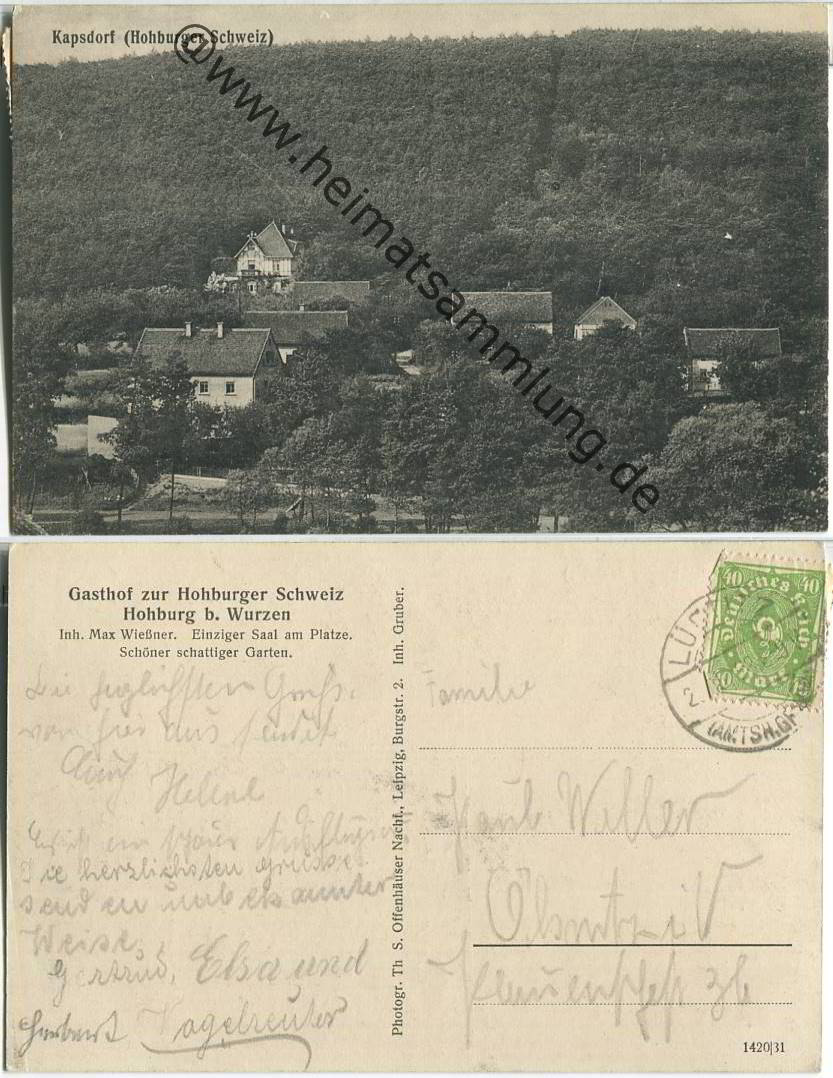 Kapsdorf (Hohburger Schweiz)
@www.heimatsammlung.de
Gasthof zur Hohburger Schweiz
Hohburg b. Wurzen
Inh. Max Wießner. Einziger Saal am Platze.
Schöner schattiger Garten.
Die Grüße
von hier aus sendet
Helene
Die herzlichsten Grüsse
senden unbekannter
Weise
Gertrud, Elsa und
Herbert Vogelreuter
Photogr. Th S. Offenhäuser Nachf., Leipzig, Burgstr. 2. Inh. Gruber.
40 40
Deutsches Reich
Mark
(AMTSH.GR
Familie
Paul Weller
Ölsnitz i V
1420|31